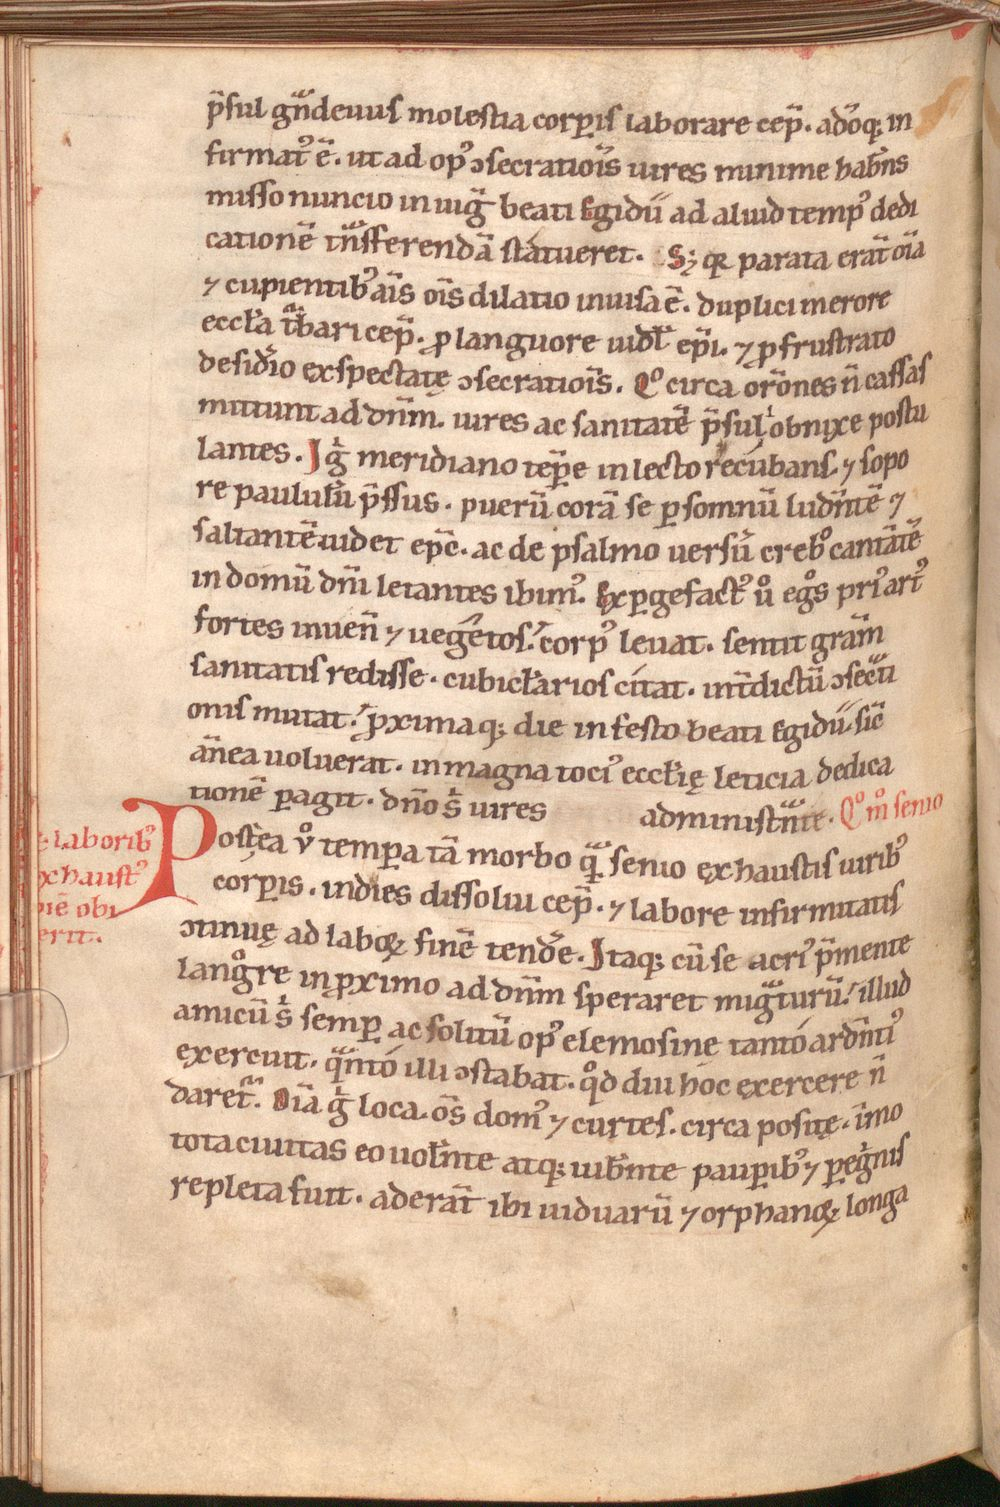 p̄sul gn̄deuus molestia corꝑis laborare cep̄. adōq; in
firmatꝰ ē. ut ad opꝰ ↄsecratiōis uires minime habn̄s
misso nuncio in uig̅ beati Egidii ad aliud tempꝰ dedi
cationē tn̄sferendā statueret. Sꝫ qr parata erāt oīa
⁊ cupientibꝰ aīs oīs dilatio inuisa ē. duplici merore
eccl̄a t̄bari cep̄. ꝓ languore uidl̄ ep̄i. ⁊ ꝓ frustrato
desid̄io exspectatę ↄsecratiōis. Qº circa or̄ones n̄ cassas
mittunt ad dn̄m. uires ac sanitatē p̄suli obnixe postu
lantes. Igͥ meridiano tēꝑe in lecto recubans. ⁊ sopo
re paulul̄u p̄ssus. puerū corā se ꝑ somnū ludn̄tē ⁊
saltantē uidet ep̄c. ac de psalmo uersū crebº cantātē
in domū dn̄i letantes ibimꝰ. Exꝑgefactꝰ uº egºs priꝰ artꝰ
fortes inuen̄ ⁊ uegetos. corpꝰ leuat. sentit grām
sanitatis redisse. cubicl̄arios citat. int̄dictū ↄsecti
onis mutat. ꝓximaq; die in festo beati Egidii sic̄
ān ea uoluerat. in magna tociꝰ eccl̄ię leticia dedica
tionē ꝑagit. dn̄o sͥ uires administn̄te. Qºm̄ senio
⁊ laboribꝰ
exhaustꝰ
piē obi
erit.
Postea uº temꝑa tā morbo qᷓ senio exhaustis uiribꝰ
corꝑis. indies dissolui cep̄. ⁊ labore infirmitatis
ↄtinuę ad laboꝝ finē tend̄e. Itaq; cū se acriꝰ p̄mente
langºre in ꝓximo ad dn̄m speraret migᷓturū. illud
amicū sͥ semꝑ ac solitū opꝰ elemosine tanto ardn̄tiꝰ
exercuit. qᷓnto illi ↄstabat. qºd diu hoc exercere n̄
daret᷑. Oīa gͥ loca. oīs domꝰ ⁊ curtes. circa positę. īmo
tota ciuitas eo uol̄nte atq; iub̄nte pauꝑibꝰ ⁊ ꝑegͥnis
repleta fuit. aderāt ibi uiduarū ⁊ orphanoꝝ longa